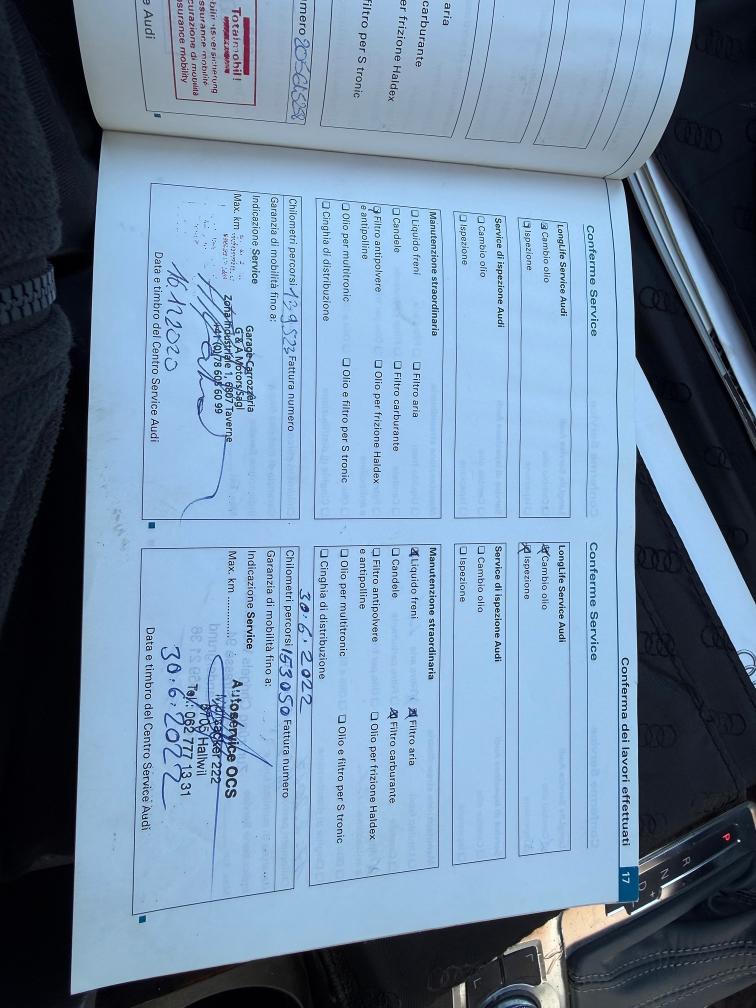 aria
carburante
er frizione Haldex
filtro per S tronic
mero
Totalmobil!
assurance mobilité
curazione di mobilità
surance mobility
e Audi
Conferma dei lavori effettuati
17
Conferme Service
LongLife Service Audi
Cambio olio
Ispezione
Service di ispezione Audi
Cambio olio
Ispezione
Manutenzione straordinaria
Liquido freni
Filtro aria
Candele
Filtro carburante
Filtro antipolvere
e antipolline
Olio per frizione Haldex
Olio per multitronic
Olio e filtro per S tronic
Cinghia di distribuzione
Chilometri percorsi 139523 Fattura numero
Garanzia di mobilità fino a:
Indicazione Service
Max. km
Garage Carrozzeria
G & A Motors Sagl
Zona Industriale 1, 6807 Taverne
+41 (0)78 605 60 99
16 12 2020
Data e timbro del Centro Service Audi
Conferme Service
LongLife Service Audi
Cambio olio
Ispezione
Service di ispezione Audi
Cambio olio
Ispezione
Manutenzione straordinaria
Liquido freni
Filtro aria
Candele
Filtro carburante
Filtro antipolvere
e antipolline
Olio per frizione Haldex
Olio per multitronic
Olio e filtro per S tronic
Cinghia di distribuzione
30.6.2022
Chilometri percorsi 153050 Fattura numero
Garanzia di mobilità fino a:
Indicazione Service
Max. km ............
Autoservice OCS
222
Hallwil
Tel.: 062 777 13 31
30.6.2022
Data e timbro del Centro Service Audi
P
R
N
D